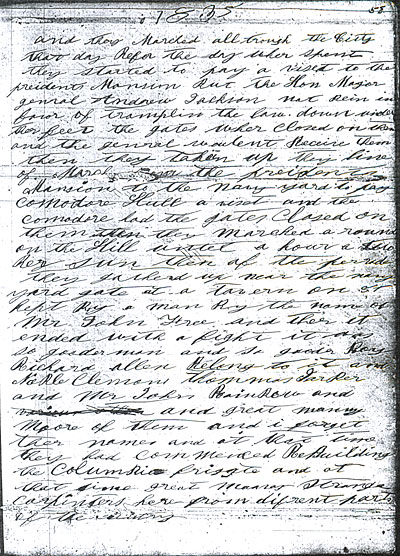 1835
58
and they Marched all trough the City
that day Befor the day wher spent
they started to pay a visit to the
presidents Mansion But the Hon Major
genral Andrew Jackson not Bein in
favor of tramplin the law down under
ther feet the gates wher Closed on them
and the genral wouldent Receive them
then they taken up they line
of March the presidents
Mansion to the Navy yard to pay
Comodore Hull a viset and the
Comodore had the gates Closed on
them then they Marched a round
on the Hill untel a hour
Ber sun then of the
they up near the navy
yard gate at a tavern on
kept By a man By the name of
Mr John and ther it
ended with a fight
so gooderman and so gooder
Richard allen Belong to it and
Noble Clemons thommas Parker
and Mr John Rainbow and
and great manny
Moore of them and i forget
ther names and at that time
they had Commenced ReBuilding
the Columbia friggte and at
that time great Manny Strange
Carpinters here from difrent parts
of the